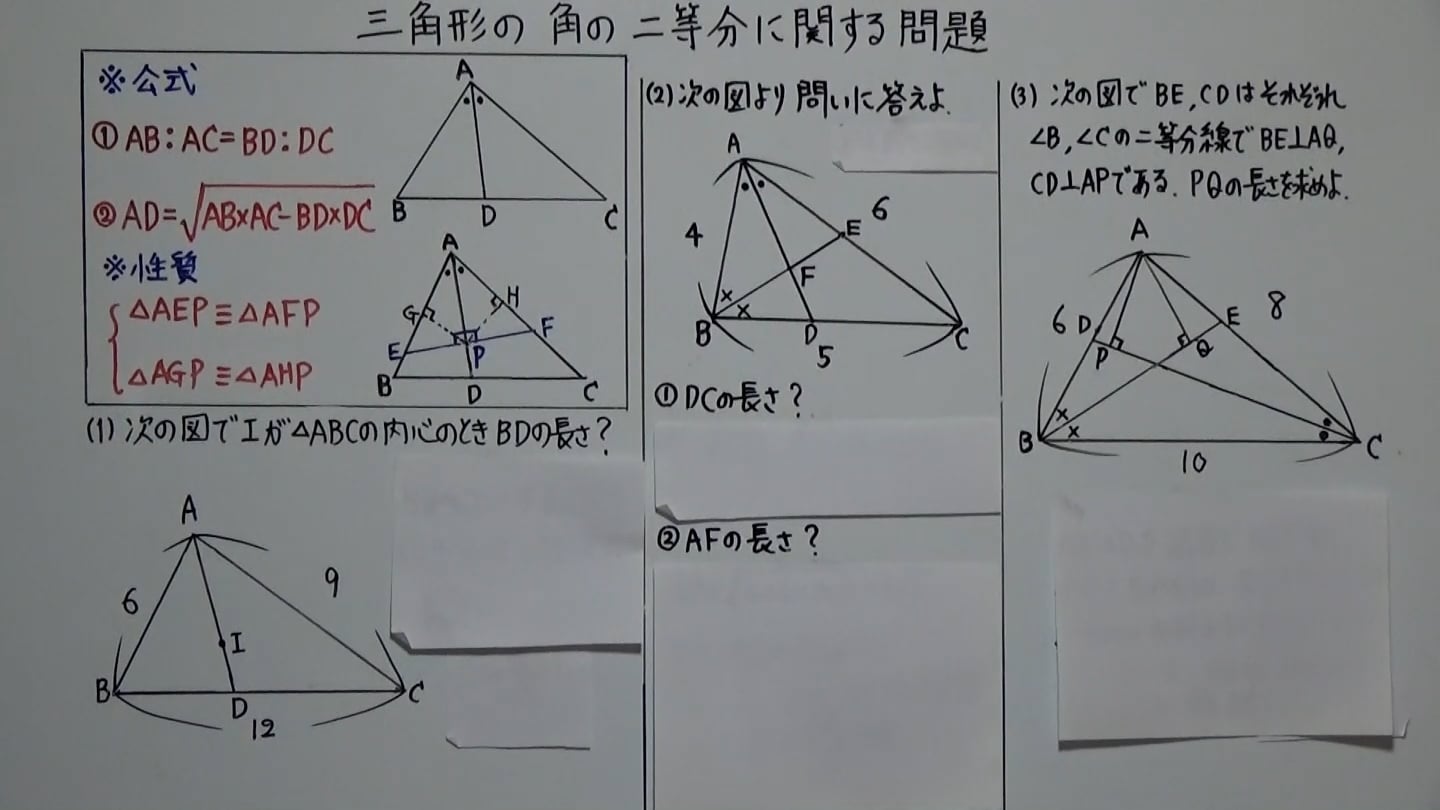 三角形の角の二等分に関する問題
※公式
①AB:AC=BD:DC
②AD=√AB×AC-BD×DC
※性質
△AEP≡△AFP
△AGP≡△AHP
A
B
D
C
A
G
H
E
P
F
B
D
C
(1)次の図でIが△ABCの内心のときBDの長さ?
A
6
9
I
B
D
C
12
(2)次の図より問いに答えよ.
A
6
E
4
F
B
D
C
5
①DCの長さ?
②AFの長さ?
(3)次の図でBE,CDはそれぞれ
∠B,∠Cの二等分線でBE⊥AQ,
CD⊥APである.PQの長さを求めよ.
A
6
D
E
8
P
Q
B
C
10